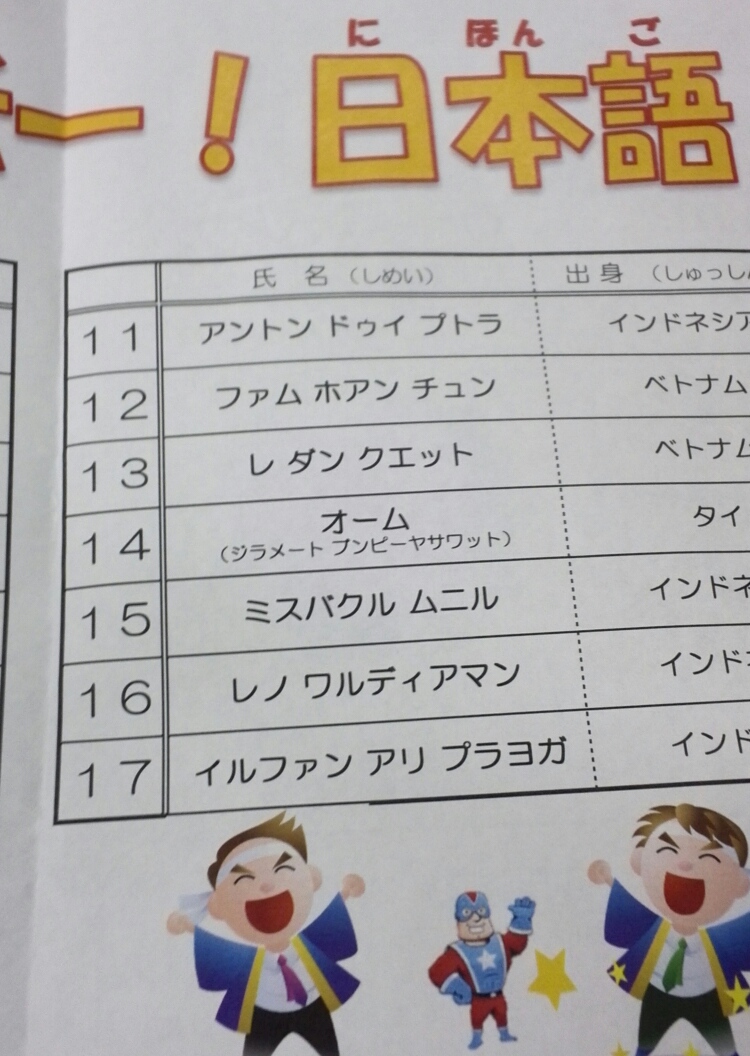 に ほん ご
ー！日本語
氏 名 （しめい） 出 身 （しゅっし
11 アントン ドゥイ プトラ インドネシア
12 ファム ホアン チュン ベトナム
13 レ ダン クエット ベトナム
14 オーム タイ
（ジラメート ブンピーヤサワット）
15 ミスバクル ムニル インドネ
16 レノ ワルディアマン インド
17 イルファン アリ プラヨガ インド